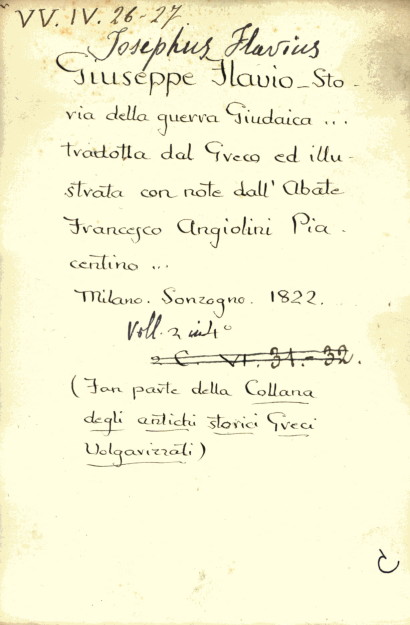 VV. IV. 26-27.
Josephus Flavius
Giuseppe Flavio - Sto-
ria della guerra Giudaica ...
tradotta dal Greco ed illu-
strata con note dall' Abate
Francesco Angiolini Pia-
centino ...
Milano. Sonzogno. 1822.
Voll. 2 in 4°
2 C. VI. 31.-32.
(Fan parte della Collana
degli antichi storici Greci
Volgarizzati)